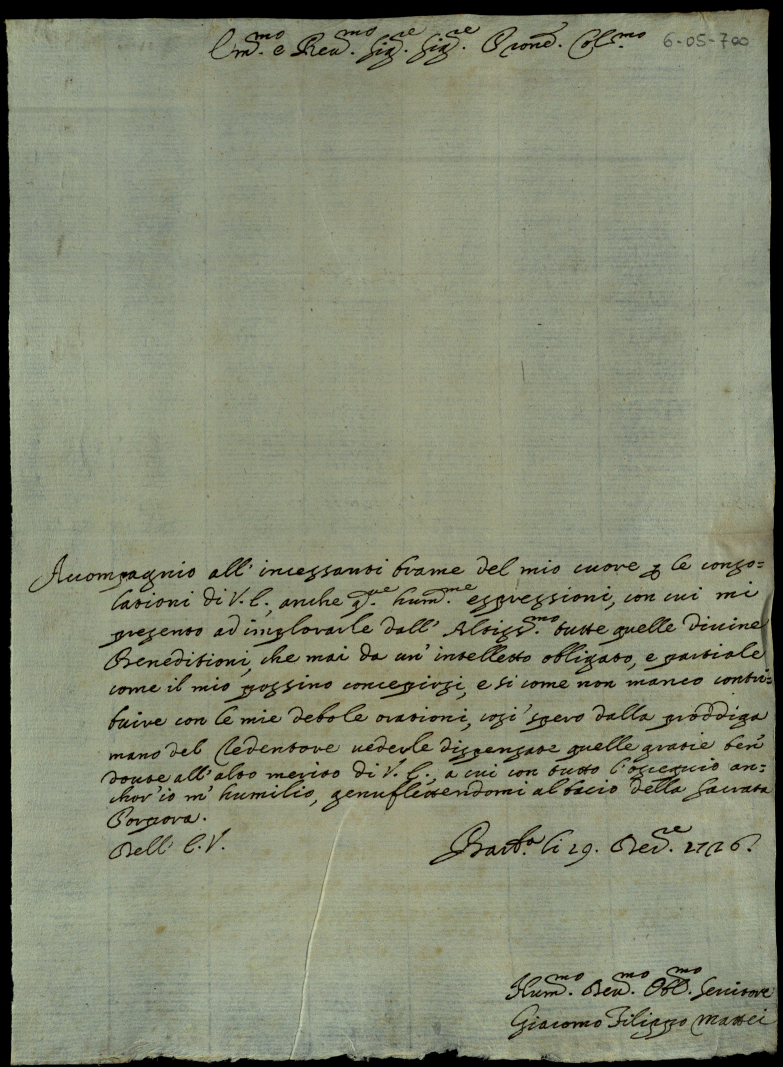 Em.mo e Reu.mo Sig.re Sig.re Prone. Col.mo 6-05-700
Acompagnio all' incessanti brame del mio cuore p le conso=
lationi di V. E., anche q.te hum.me espressioni, con cui mi
presento ad implorarle dall' Altiss.mo tutte quelle diuine
Beneditioni, che mai da un' intelletto obligato, e partiale
come il mio possino concepirsi, e si come non manco contri=
buire con le mie debole orationi, cosi' spero dalla proddiga
mano del Redentore uederle dispensate quelle gratie ben'
doute all' alto merito di V. E., a cui con tutto l'ossequio an=
chor' io m' humilio, genuflettendomi al bacio della Sacrata
Porpora.
Dell' E. V.
Barb.a li 19. Dec.re 1726.
Hum.mo Deu.mo Obb.mo Seruitore
Giacomo Filippo Mattei